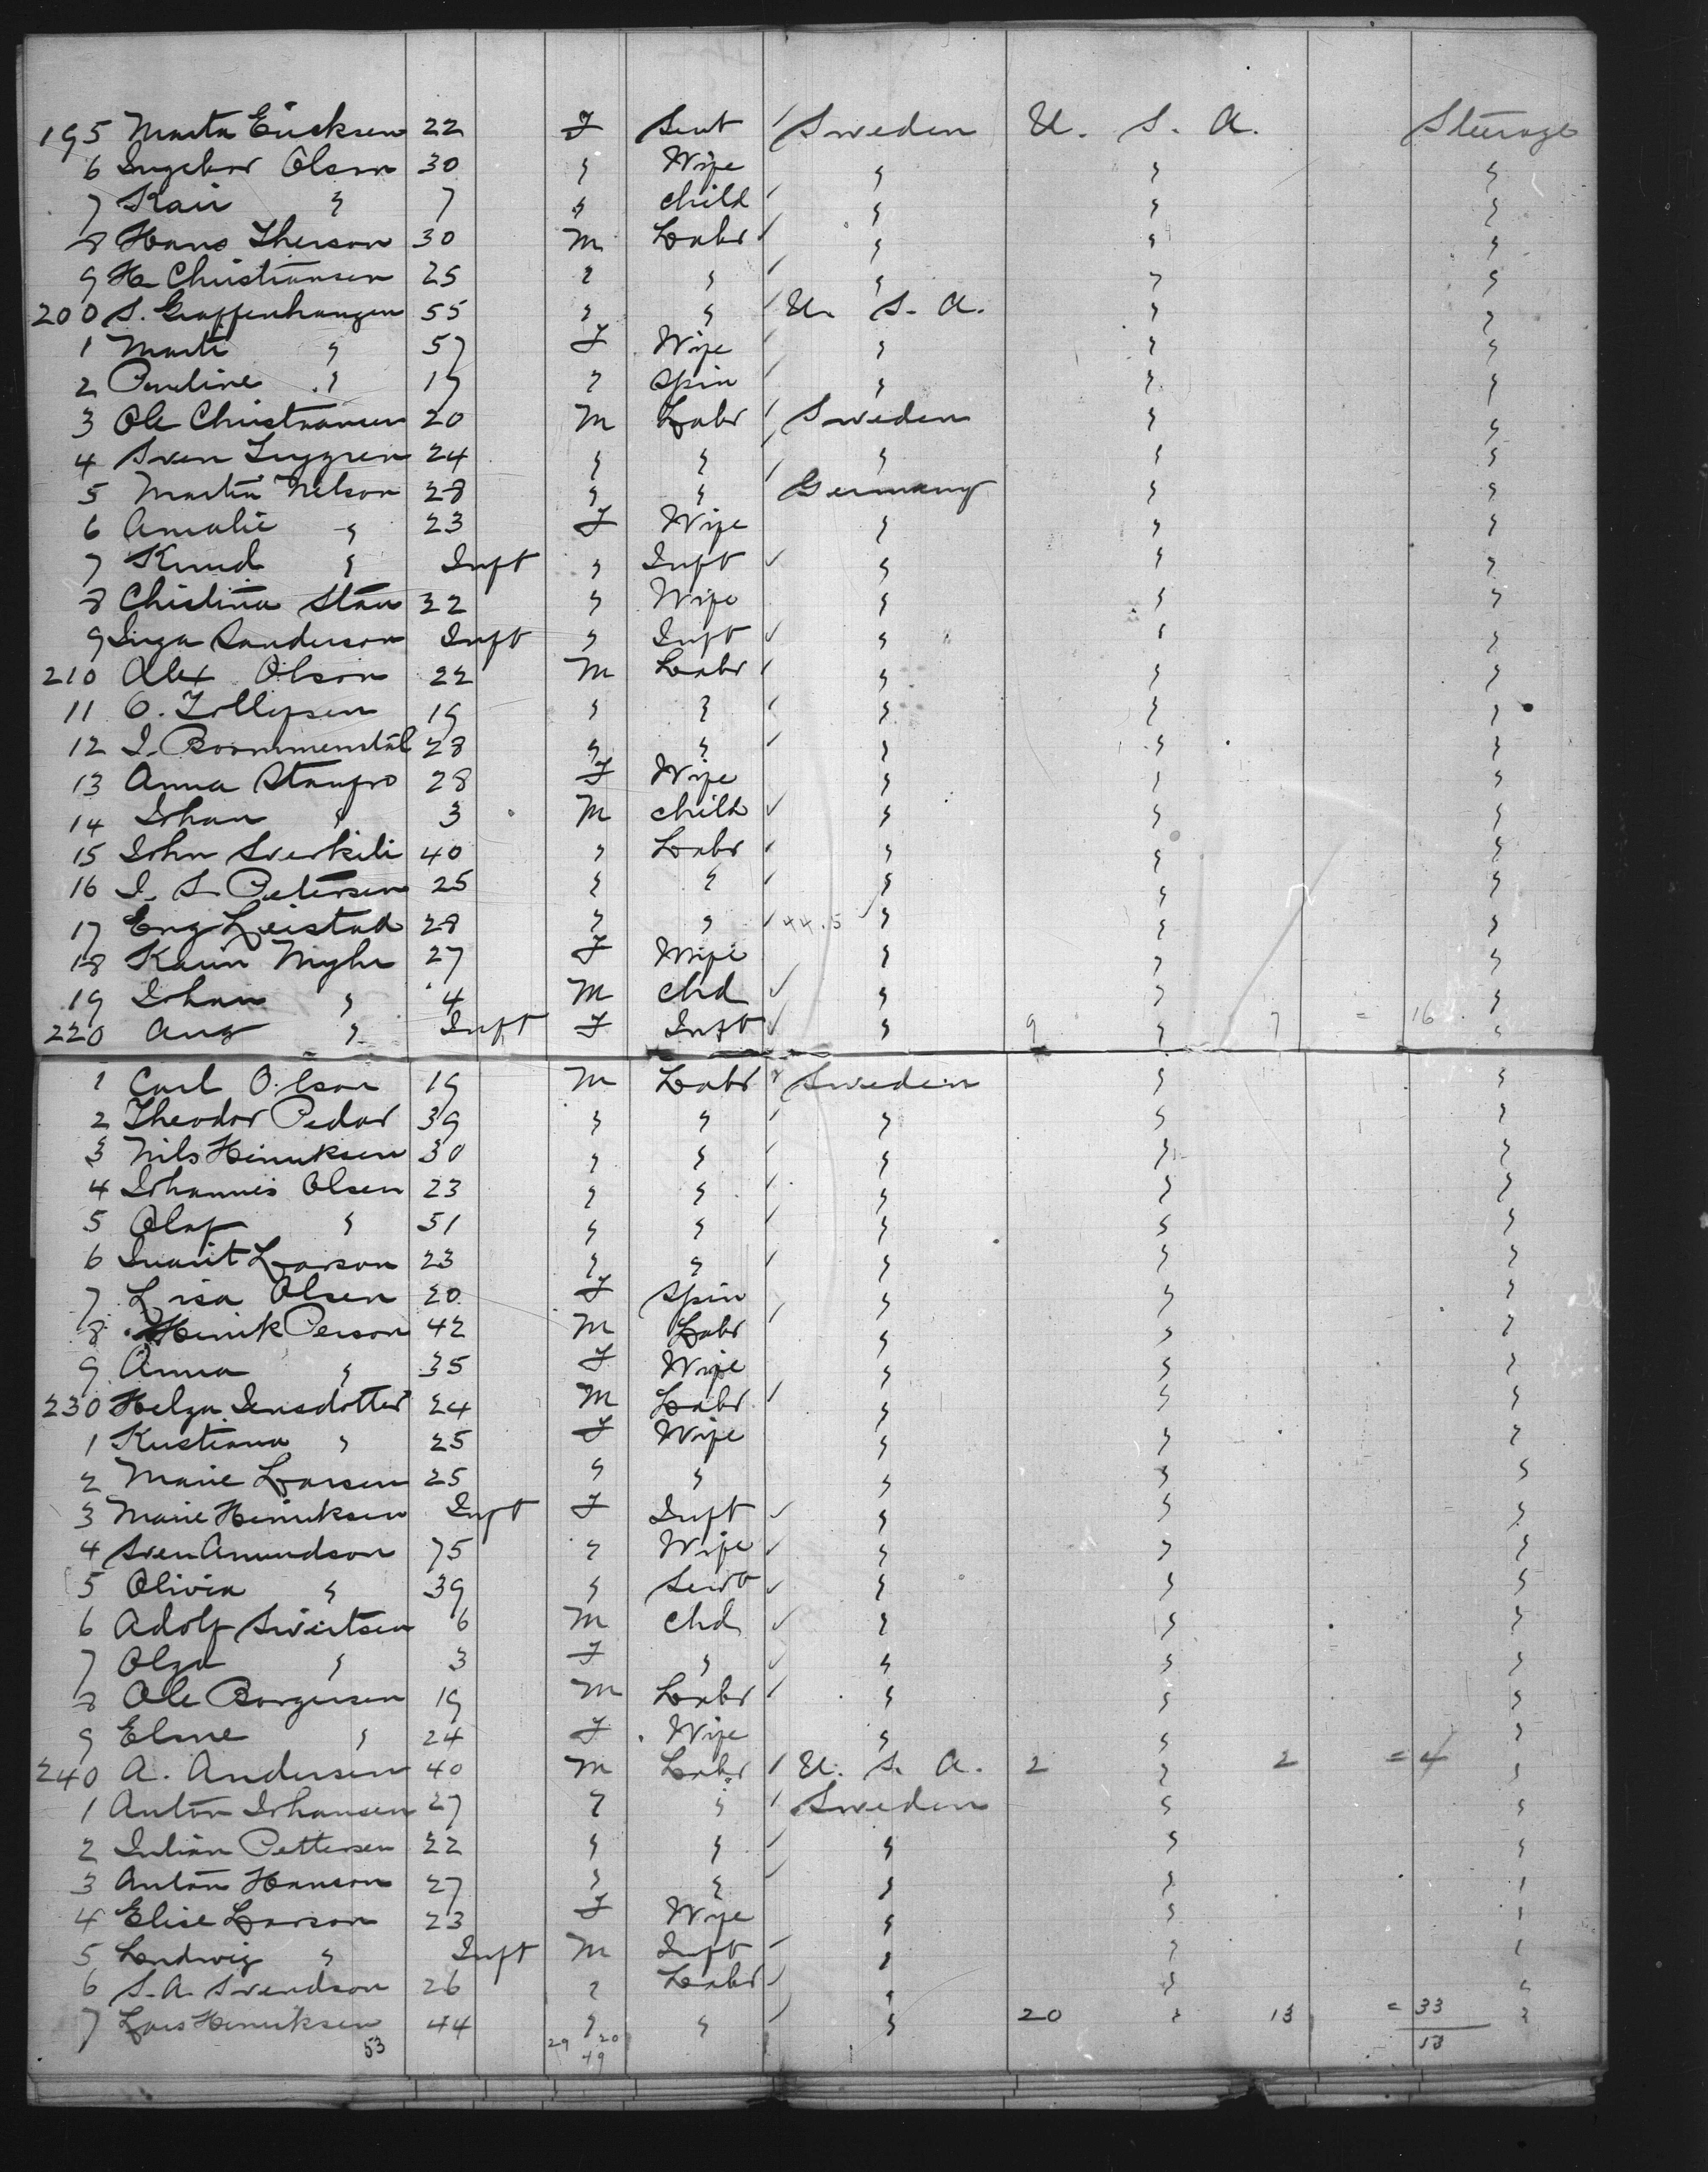 195 Marta Ericksen 22 F Sevt / Sweden U. S. A. Steerage
6 Ingebor Olson 30 " Wife " " "
7 Kari " 7 " child / " " "
8 Hans Therson 30 M Labr / " " "
9 H. Christiansen 25 " " / " " "
200 S. Graffenhangen 55 " " / U. S. A. " "
1 Marti " 57 F Wife / " " "
2 Pauline " 19 " Spin / " " "
3 Ole Christiansen 20 M Labr / Sweden " "
4 Sven Luggren 24 " " / " " "
5 Martin Nelson 28 " " / Germany " "
6 Amalie " 23 F Wife " " "
7 Knud " Inft " Inft ✓ " " "
8 Christina Stau 32 " Wife " " "
9 Inga Sanderson Inft " Inft ✓ " " "
210 Alex Olson 22 M Labr / " " "
11 O. Tollefsen 19 " " / " " "
12 I. Boommenstal 28 " " / " " "
13 Anna Staufro 28 F Wife " " "
14 Johan " 3 M child ✓ " " "
15 John Sverkili 40 " Labr / " " "
16 I. S. Petersen 25 " " / " " "
17 Eng Leistad 28 " " / 44.5 " " "
18 Karin Myhr 27 F Wife " " "
19 Johan " 4 M chd ✓ " " "
220 Aug " Inft F Inft ✓ " 9 " 7 = 16 "
1 Carl Olson 19 M Labr / Sweden " "
2 Theodor Pedar 39 " " / " " "
3 Nils Hinriksen 30 " " / " " "
4 Johannis Olsen 23 " " / " " "
5 Olaf " 51 " " / " " "
6 Larson 23 " " / " " "
7 Lisa Olsen 20 F Spin " " "
8 Henrik Person 42 M Labr / " " "
9 Anna " 35 F Wife " " "
230 Helga Jensdotter 24 M Labr / " " "
1 Kristiana " 25 F Wife " " "
2 Marie Larsen 25 " " " " "
3 Marie Henriksen Inft F Inft ✓ " " "
4 Sven Amundson 75 " Wife ✓ " " "
5 Olivia " 39 " Servt ✓ " " "
6 Adolf Sivertsen 6 M chd ✓ " " "
7 Olga " 3 F " ✓ " " "
8 Ole Borgersen 19 M Labr / " " "
9 Elsne " 24 F Wife " " "
240 A. Andersen 40 M Labr / U. S. A. 2 " 2 = 4 "
1 Anton Johansen 27 " " / Sweden " "
2 Julian Pettersen 22 " " / " " "
3 Anton Hanson 27 " " / " " "
4 Elise Larson 23 F Wife " " "
5 Ludwig " Inft M Inft / " " "
6 S. A. Svendson 26 " Labr / " " "
7 Lars Henriksen 44 " " / " 20 " 13 = 33 "
53 29 20 53
49